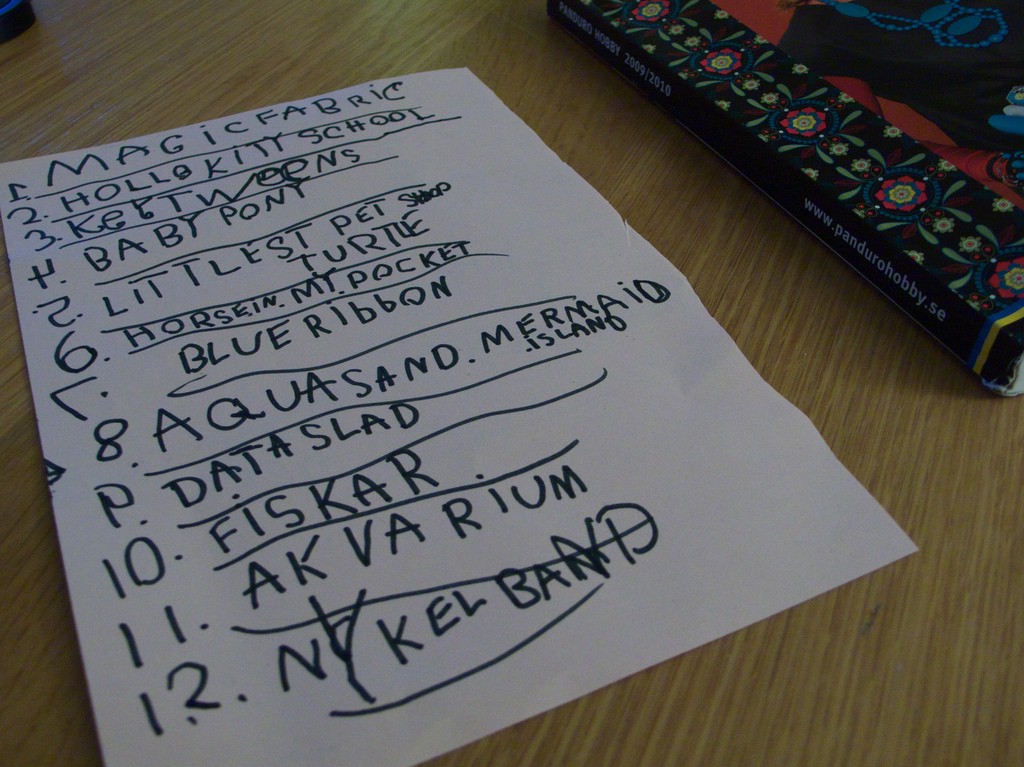 1. MAGiCFABRiC
2. HOLLOKiTY SCHOOL
3. KeTTWEENS
4. BABY PONY
5. LITTLEST PET SHOP
TURTLE
6. HORSEIN.MY.POCKET
7. BLUE RibbON
8. AQUASAND.MERMAiD
.iSLAND
9. DATASLAD
10. FiSKAR.
11. AKVARiUM
12. NYKELBAND
PANDURO HOBBY 2009/2010
www.pandurohobby.se